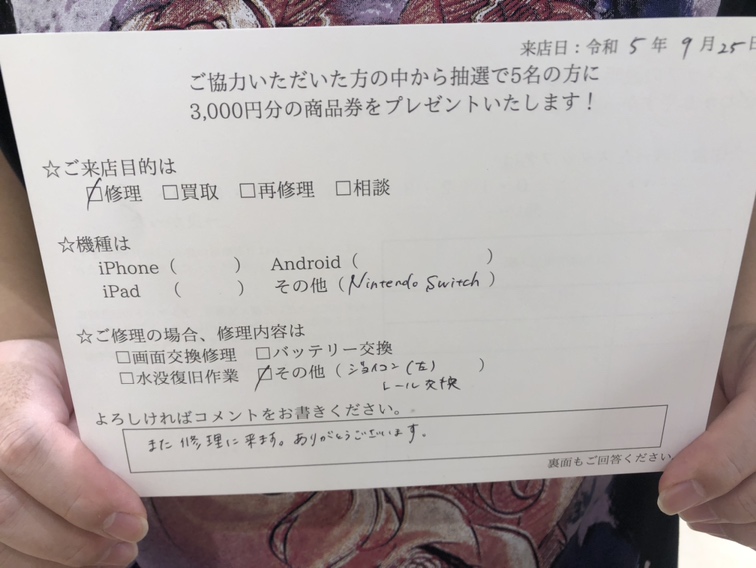 来店日：令和 5 年 9 月 25 日
ご協力いただいた方の中から抽選で5名の方に
3,000円分の商品券をプレゼントいたします！
☆ご来店目的は
☑修理 □買取 □再修理 □相談
☆機種は
iPhone（ ） Android（ ）
iPad （ ） その他（Nintendo Switch）
☆ご修理の場合、修理内容は
□画面交換修理 □バッテリー交換
□水没復旧作業 ☑その他（ジョイコン（左） ）
レール交換
よろしければコメントをお書きください。
また修理に来ます。ありがとうございます。
裏面もご回答ください